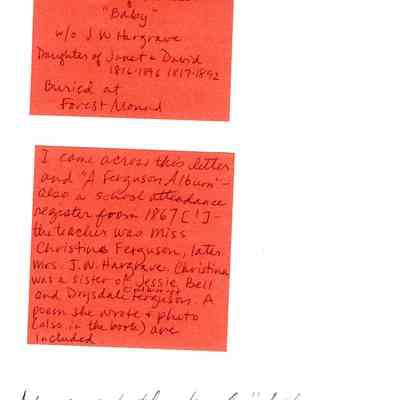 "Baby"
w/o J W Hargrave
Daughter of Janet + David
1816-1896 1817-1892
Buried at
Forest Mound
I came across this letter
and "A Ferguson Album"-
also a school attendance
register from 1867 [!]-
the teacher was Miss
Christina Ferguson, later
Mrs. J.W. Hargrave. Christina
was a sister of Jessie, Bell
and Drysdale Ferguson. A
poem she wrote + photo
(also in the book) are
included